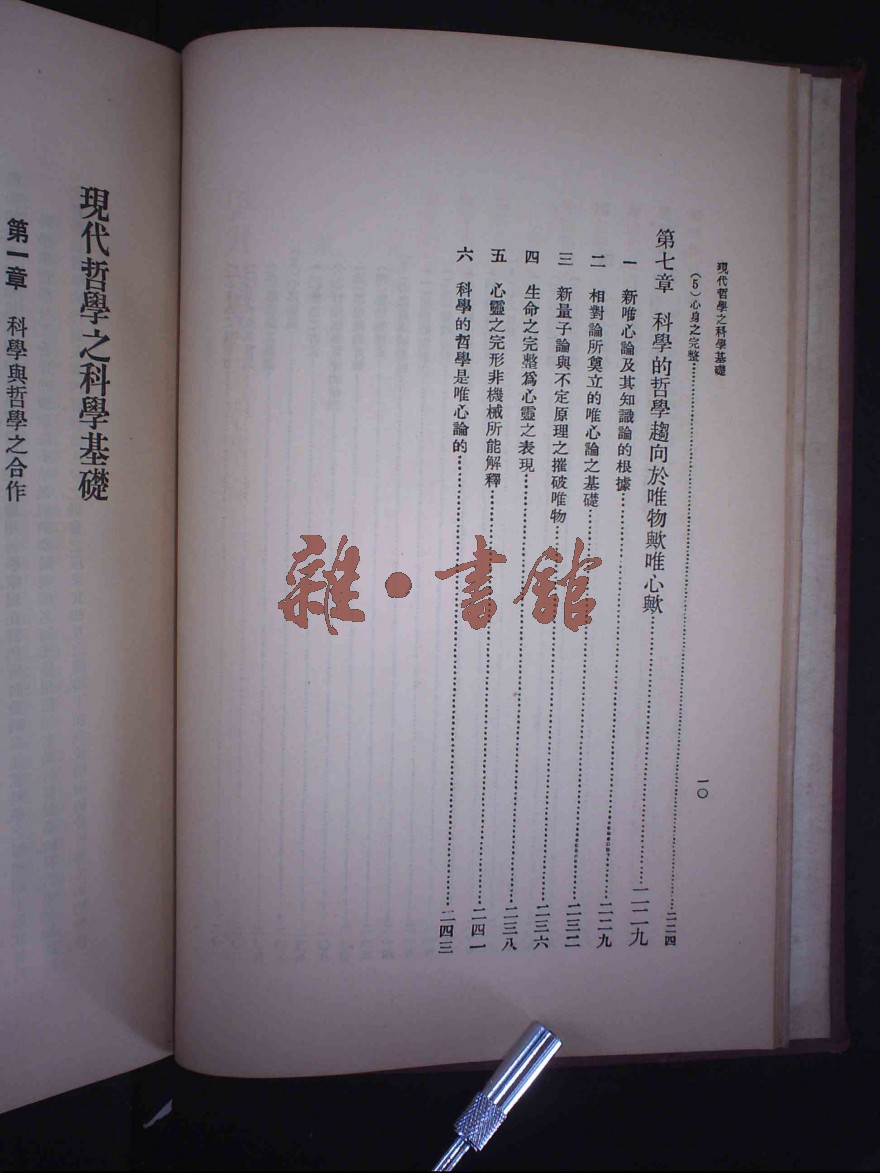 現代哲學之科學基礎
一〇
(5)心身之完整……二二四
第七章 科學的哲學趨向於唯物歟唯心歟……二二九
一 新唯心論及其知識論的根據……二二九
二 相對論所奠立的唯心論之基礎……二三二
三 新量子論與不定原理之摧破唯物……二三六
四 生命之完整爲心靈之表現……二三八
五 心靈之完形非機械所能解釋……二四一
六 科學的哲學是唯心論的……二四三
現代哲學之科學基礎
第一章 科學與哲學之合作
雜·書館